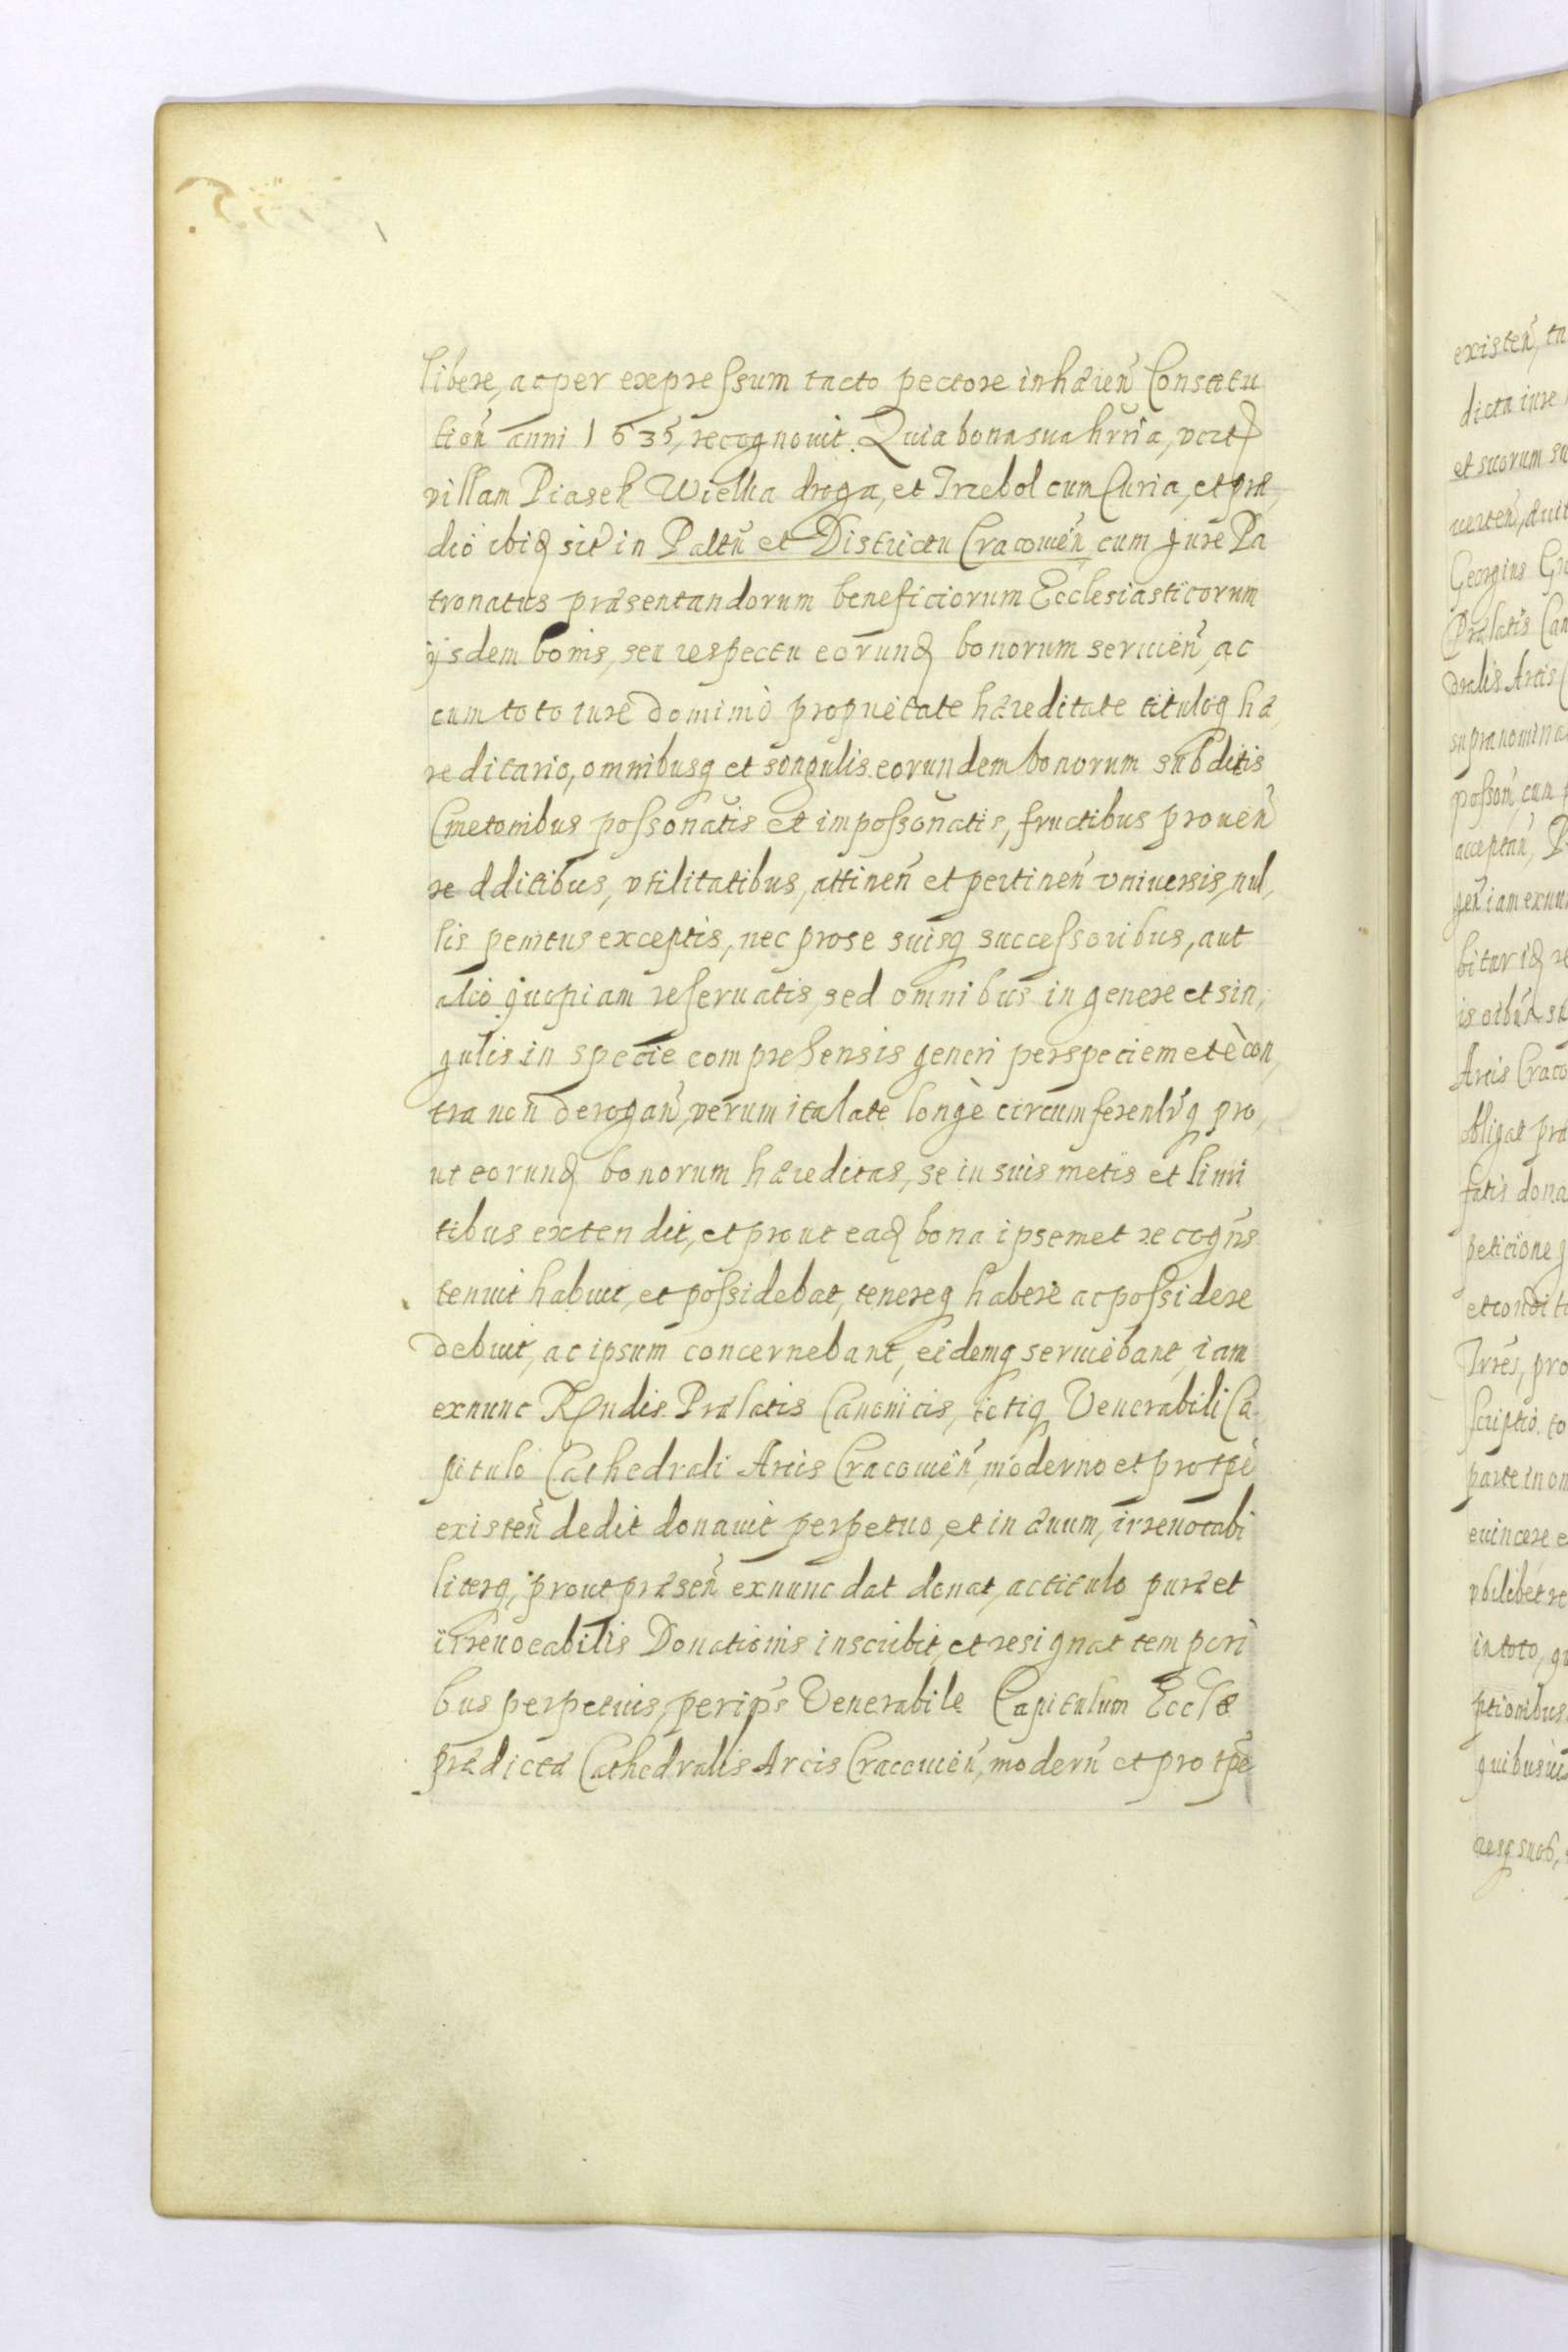 libere, ac per expressum tacto pectore inhæreñ Constitu
tioñ anni 1635, recognouit. Quia bona sua hrria, vzt
villam Piasek Wielka droga, et Trzebol cum Curia, et præ
dio ibiq sit in Paltũ et Districtu Cracouieñ cum Jure Pa
tronatus præsentandorum beneficiorum Ecclesiasticorum
ijsdem bonis, seu respectu eorunq bonorum seruieñ, ac
cum toto iure dominio proprietate hæreditate tituloq hæ
reditario, omnibusq et singulis eorundem bonorum subditis
Cmetonibus possonatis et impossonatis, fructibus proueñ
redditibus, vtilitatibus, attineñ et pertineñ vniuersis, nul,
lis penitus exceptis, nec pro se suisq successoribus, aut
alio quopiam reseruatis, sed omnibus in genere et sin,
gulis in specie comprehensis generi per speciem et è con,
tra non derogañ, verum ita late longè circumferentrq pro,
ut eorunq bonorum hæreditas, se in suis metis et limi
tibus extendit, et prout eaq bona ipsemet recogñs
tenuit habuit, et possidebat, tenereq habere ac possidere
debuit, ac ipsum concernebant, eidemq seruiebant, iam
exnunc Rndis Prælatis Canonicis, totiq Venerabili Ca
pitulo Cathedrali Arcis Cracouieñ, moderno et pro tpe
existeñ dedit donauit perpetuo, et in æuum, irreuocabi
literq, prout præseñ exnunc dat donat, ac titulo puræ et
irreuocabilis Donationis inscribit, et resignat tempori
bus perpetuis, per ips Venerabile Capitulum Eccłæ
prædictæ Cathedralis Arcis Cracouieñ, moderñ et pro tpe
existeñ, ta
dicta iure
et suorum su
uerteñ, quit
Georgius Gr
Prælatis Can
dralis Arcis C
supranomina
possoñ, cun
acceptañ, P
geñ iam exnun
bitur iq re
Arcis Craco
obligat præ
fatis dona
petitione q
et condit
Trres, pro
scriptio. to
parte in om
euincere e
vbilibet re
in toto, qu
ptionibus
quibusuis
resq suos,